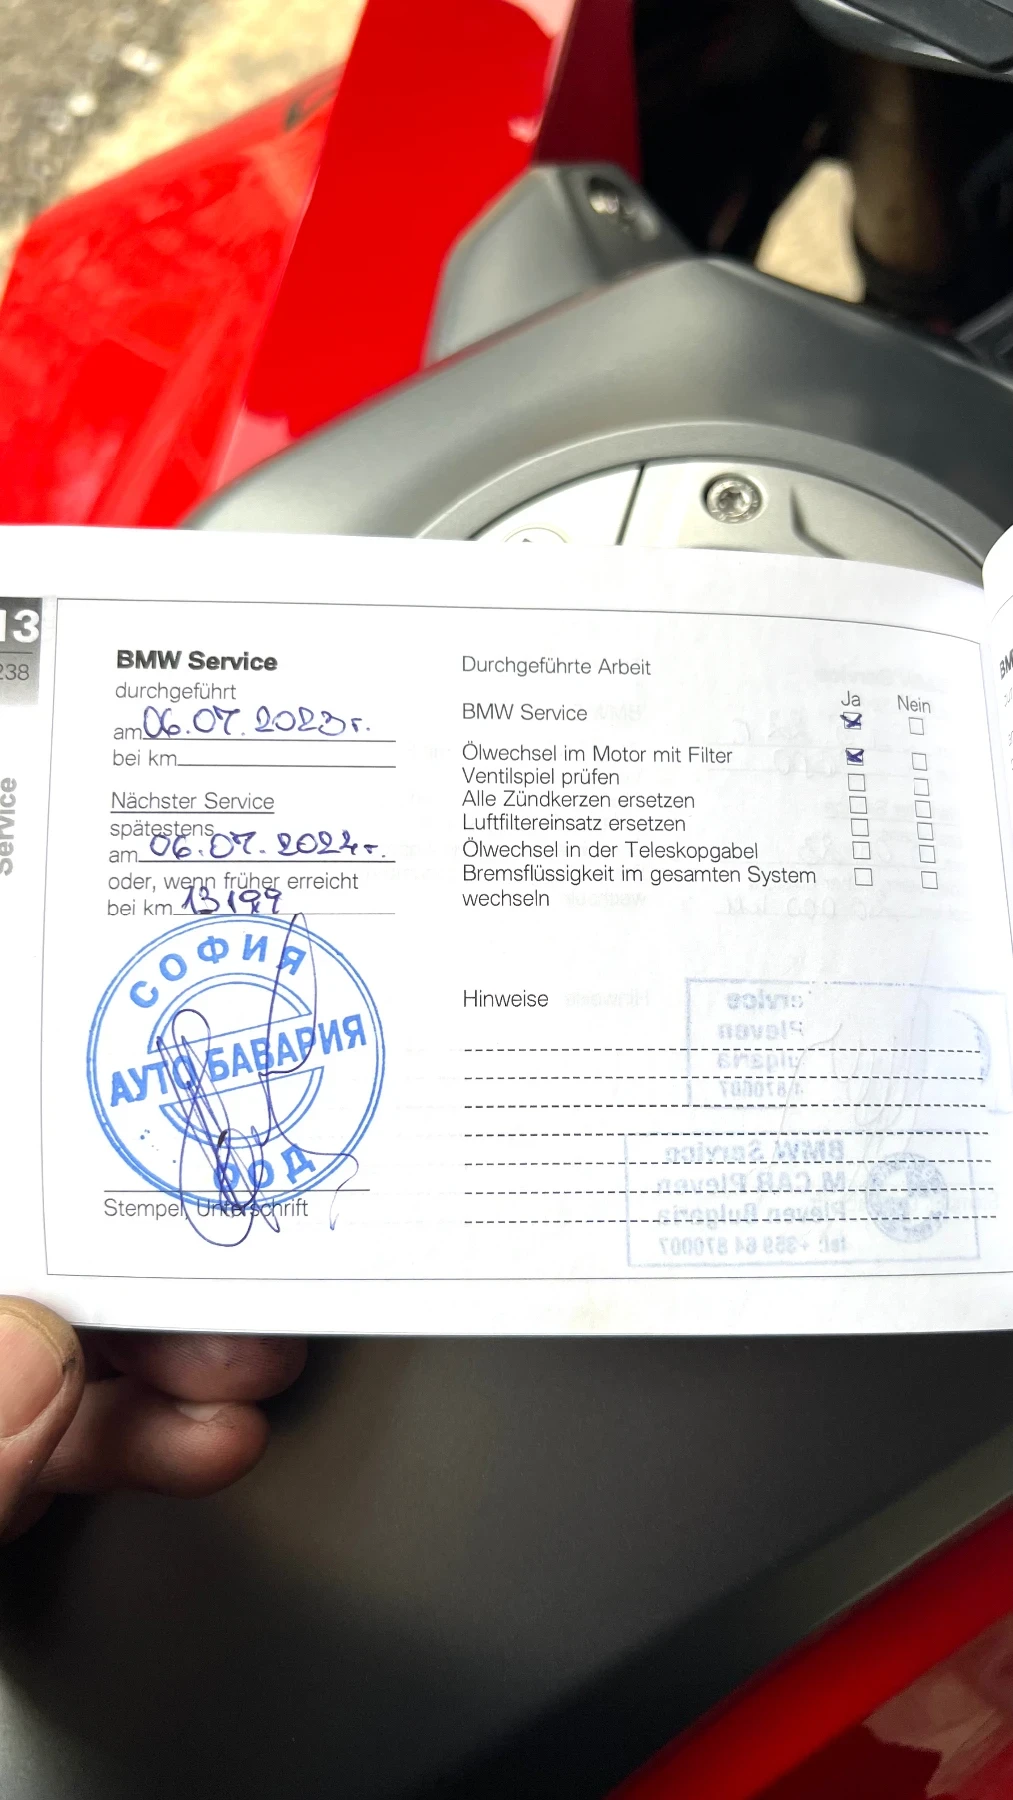 13
238
Service
BMW Service
durchgeführt
am 06.07.2023г.
bei km
Nächster Service
spätestens
am 06.07.2024г.
oder, wenn früher erreicht
bei km 13199
СОФИЯ
АУТО БАВАРИЯ
ООД
Stempel, Unterschrift
Durchgeführte Arbeit
Ja Nein
BMW Service
Ölwechsel im Motor mit Filter
Ventilspiel prüfen
Alle Zündkerzen ersetzen
Luftfiltereinsatz ersetzen
Ölwechsel in der Teleskopgabel
Bremsflüssigkeit im gesamten System
wechseln
Hinweise